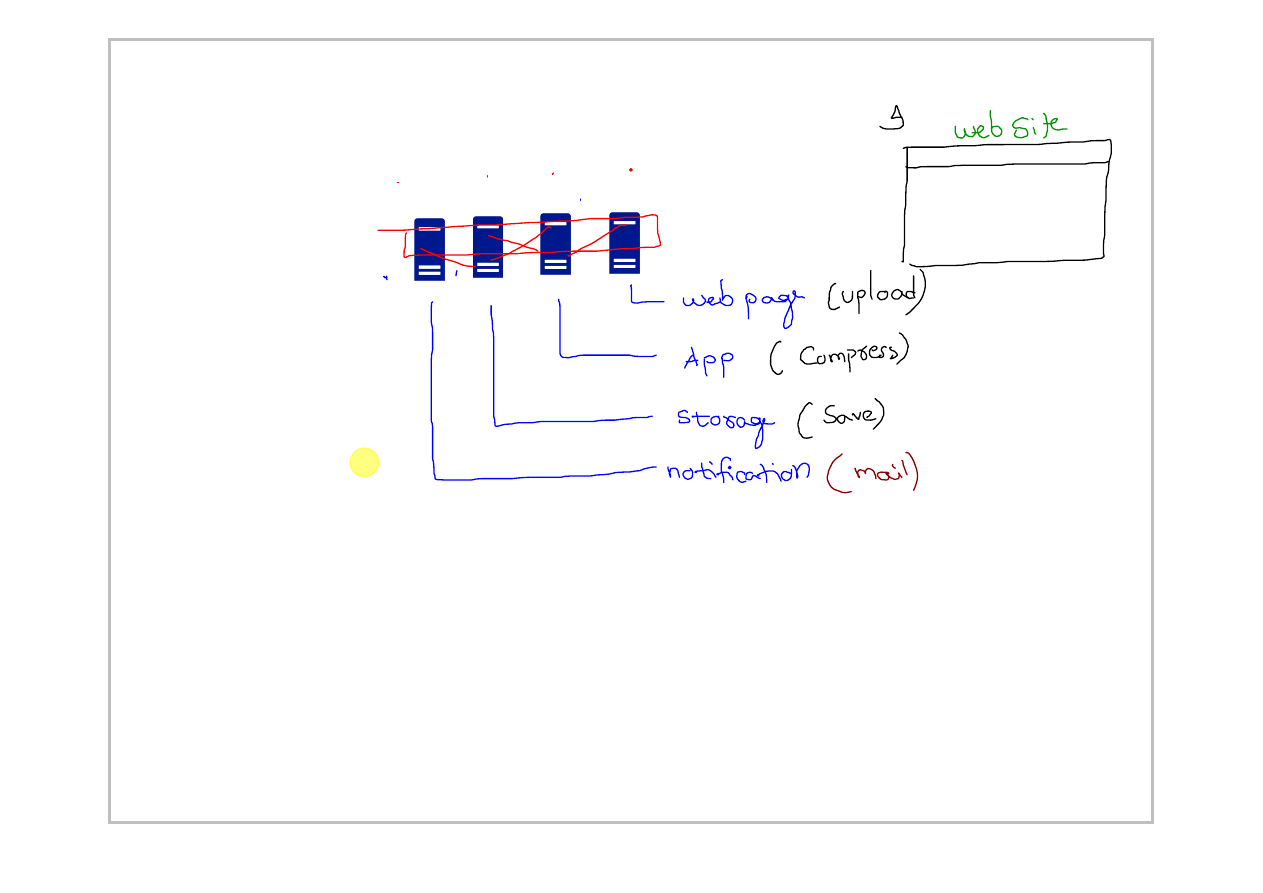 web site
web page (upload)
App ( Compress)
Storage (Save)
notification (mail)